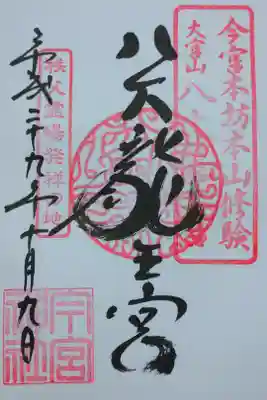 今宮本坊本山修験
大宮山 八
八大龍王宮
秩父霊場発祥の地
平成二十九年十月九日
今宮神社